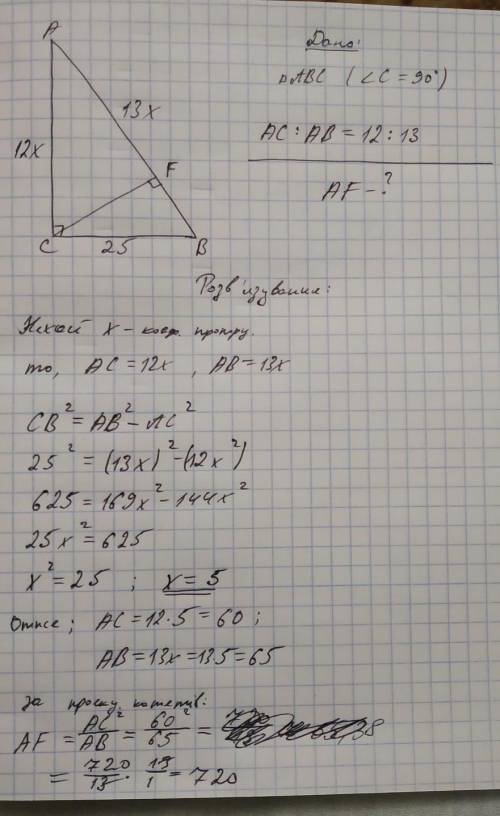 A
13x
12x
F
C
25
B
Дано:
△ABC (∠C = 90°)
AC : AB = 12 : 13
AF - ?
Розв'язування:
Нехай x - коеф. пропру.
то, AC = 12x , AB = 13x
CB² = AB² - AC²
25² = (13x)² - (12x²)
625 = 169x² - 144x²
25x² = 625
x² = 25 ; x = 5
Отже; AC = 12·5 = 60 ;
AB = 13x = 13·5 = 65
За проєкц. катетів:
AF = AC²/AB = 60²/65 =
= 720/13 · 13/1 = 720